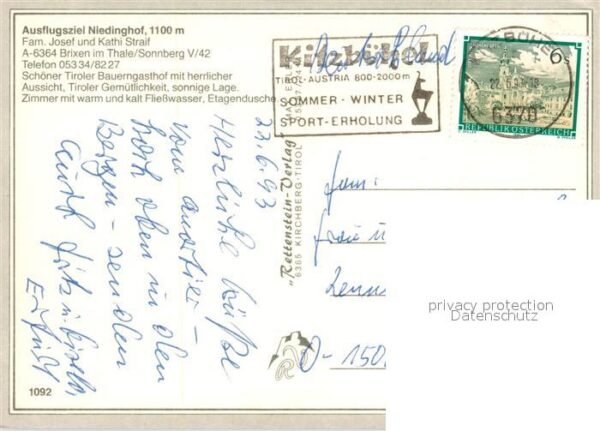 Ausflugsziel Niedinghof, 1100 m
Fam. Josef und Kathi Straif
A-6364 Brixen im Thale/Sonnberg V/42
Telefon 05334/8227
Schöner Tiroler Bauerngasthof mit herrlicher
Aussicht, Tiroler Gemütlichkeit, sonnige Lage.
Zimmer mit warm und kalt Fließwasser, Etagendusche
Kitzbühel
TIROL-AUSTRIA 800-2000m
SOMMER - WINTER
SPORT - ERHOLUNG
6370
6 S
REPUBLIK ÖSTERREICH
"Rettenstein-Verlag"
6365 KIRCHBERG-TIROL
22.6.93
Herzliche Grüße
vom
hoch oben in den
Bergen - senden
Fam.
D-150
privacy protection
Datenschutz
1092